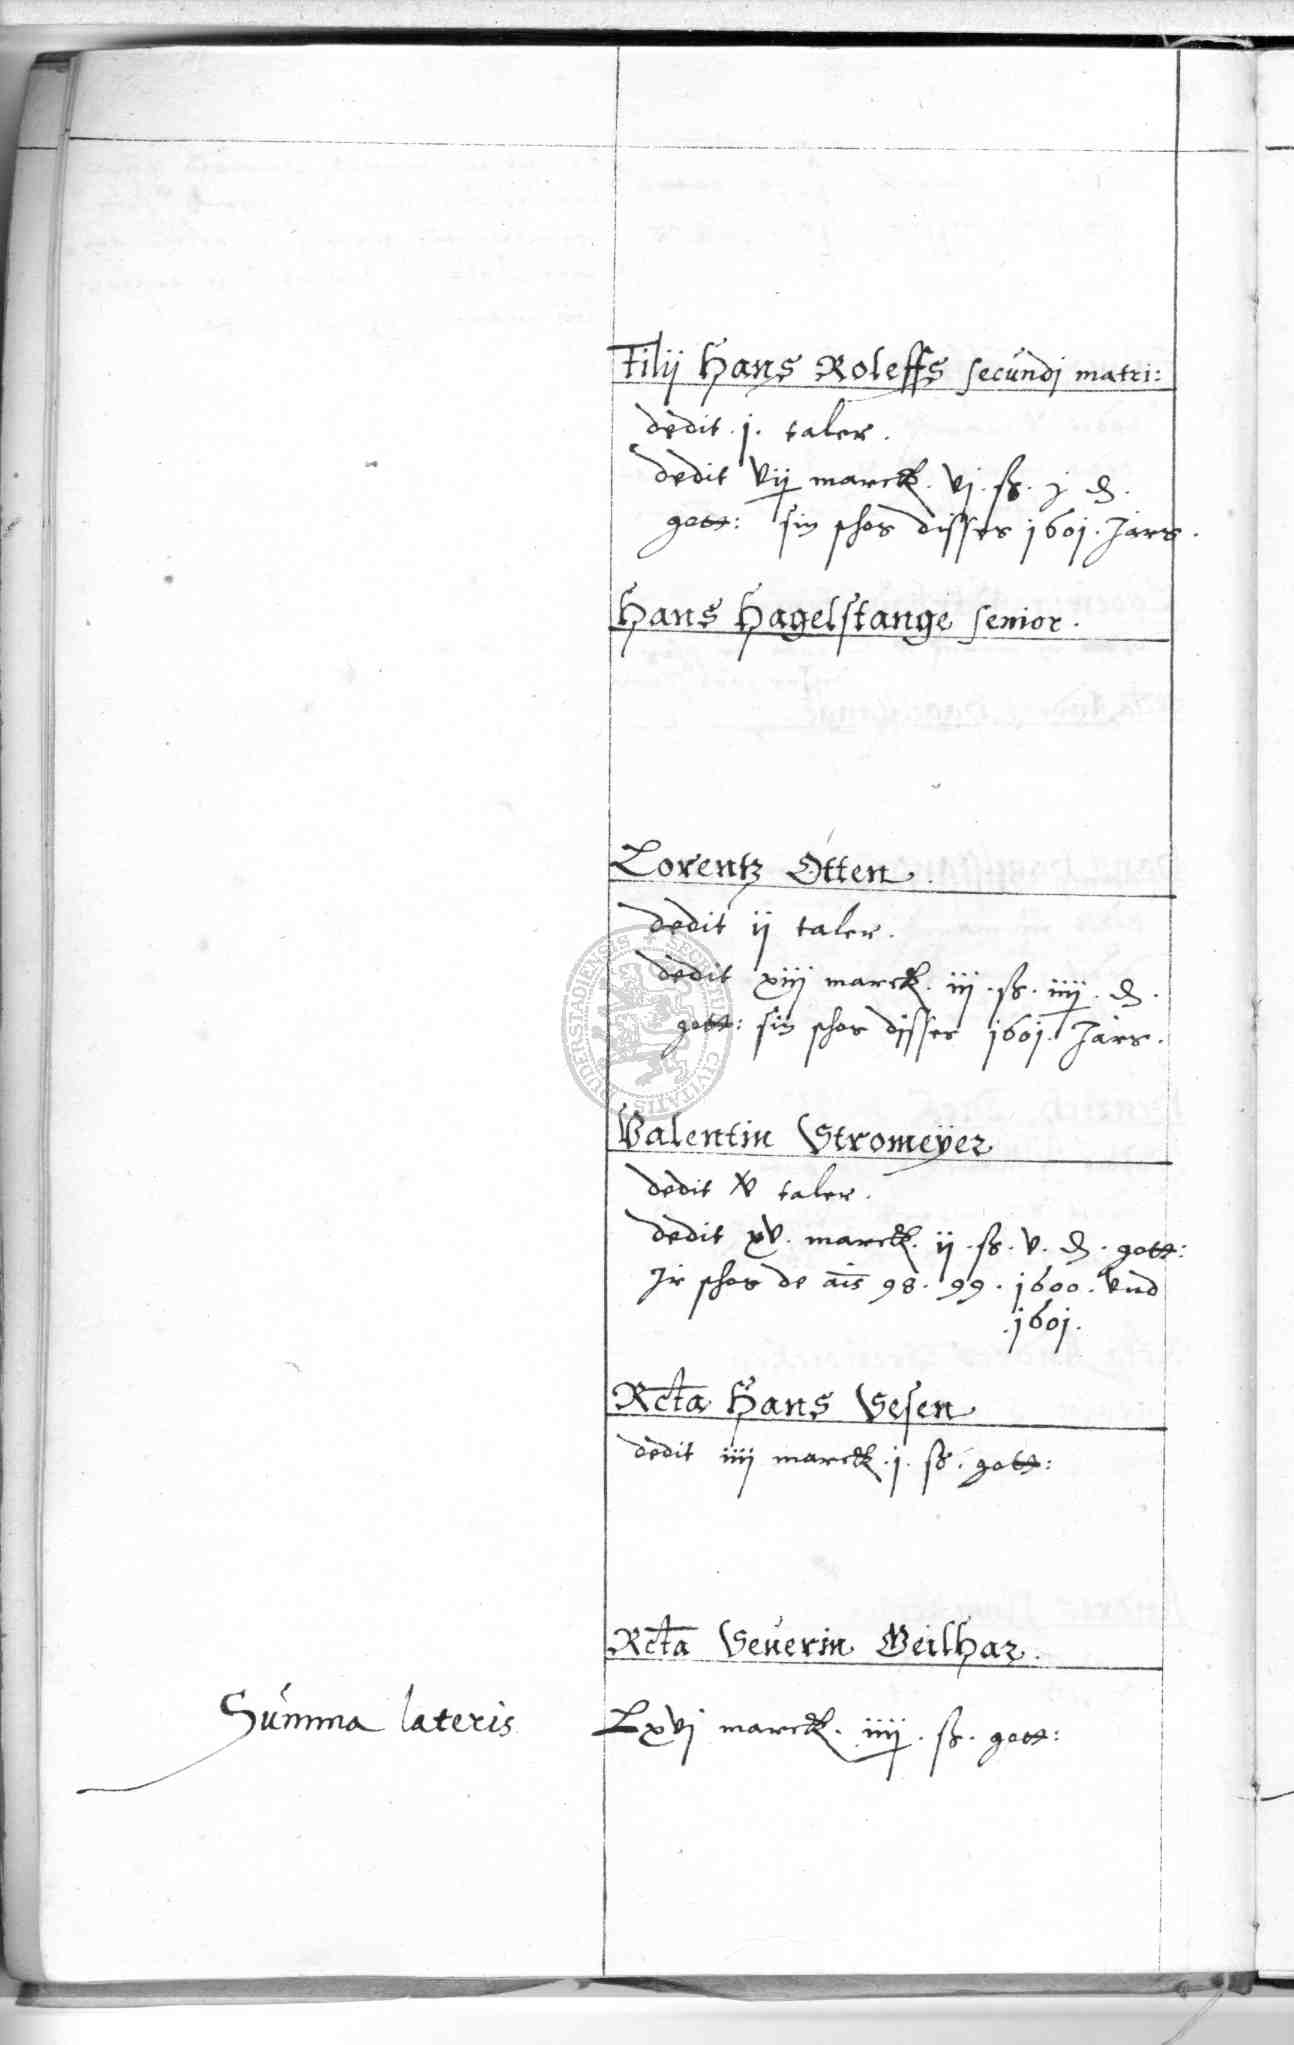 Filij Hans Roleffs secundj matri:
dedit .j. taler.
dedit vij marck. vj. ß. j ₰.
gott: sin schos disses 1601. Jars.
Hans Hagelstange senior.
Lorentz Otten.
dedit ij taler.
dedit xiij marck. iij. ß. iiij. ₰.
gott: sin schos disses 1601. Jars.
Valentin Stromeÿer
dedit v taler.
dedit xv. marck. ij. ß. v. ₰. gott:
Jr schos de ais 98. 99. 1600. vnd
.1601.
Rcta Hans Vesen
dedit iiij marck. j. ß. gott:
Rcta Seuerin Geilhar.
Summa lateris Lxvj marck. iiij. ß. gott:
SECRETUM CIVITATIS DUDERSTADIENSIS